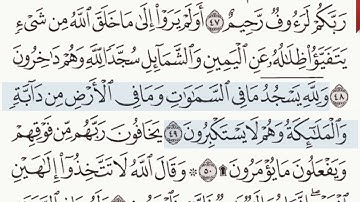 رَبَّكُمْ لَرَءُوفٌ رَّحِيمٌ ٤٧ أَوَلَمْ يَرَوْا۟ إِلَىٰ مَا خَلَقَ ٱللَّهُ مِن شَىْءٍ
يَتَفَيَّؤُا۟ ظِلَـٰلُهُۥ عَنِ ٱلْيَمِينِ وَٱلشَّمَآئِلِ سُجَّدًا لِّلَّهِ وَهُمْ دَٰخِرُونَ
٤٨ وَلِلَّهِ يَسْجُدُ مَا فِى ٱلسَّمَـٰوَٰتِ وَمَا فِى ٱلْأَرْضِ مِن دَآبَّةٍ
وَٱلْمَلَـٰٓئِكَةُ وَهُمْ لَا يَسْتَكْبِرُونَ ٤٩ يَخَافُونَ رَبَّهُم مِّن فَوْقِهِمْ
وَيَفْعَلُونَ مَا يُؤْمَرُونَ ۩ ٥٠ ۞ وَقَالَ ٱللَّهُ لَا تَتَّخِذُوٓا۟ إِلَـٰهَيْنِ